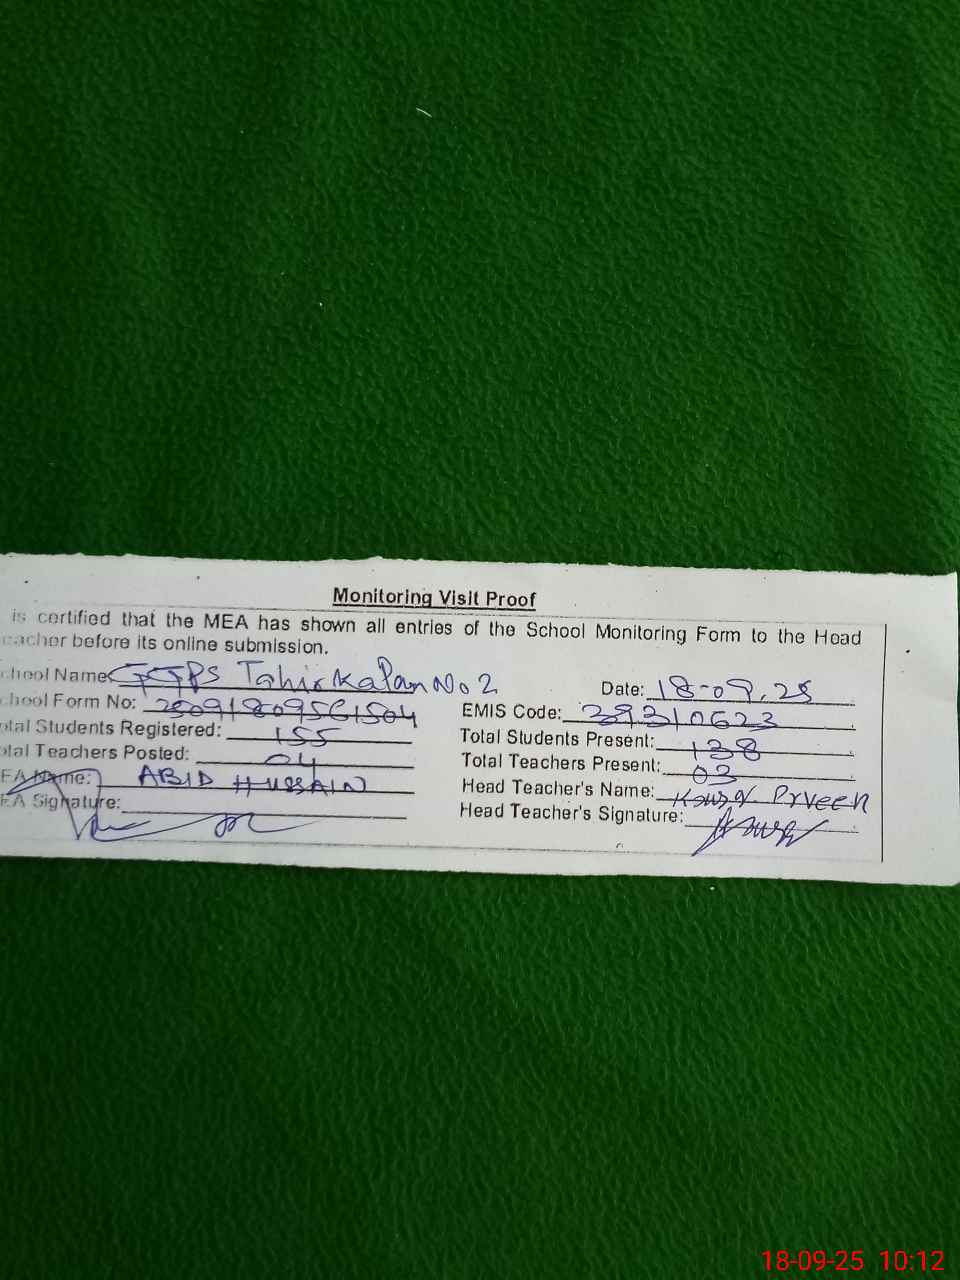 Monitoring Visit Proof
is certified that the MEA has shown all entries of the School Monitoring Form to the Head
eacher before its online submission.
chool Name: GGPS Tahir Kalan No 2 Date: 18-09.25
chool Form No: 25091809561504 EMIS Code: 39310623
otal Students Registered: 155 Total Students Present: 138
otal Teachers Posted: 04 Total Teachers Present: 03
EA Name: ABID HUSSAIN Head Teacher's Name: Kausar Prveen
EA Signature: Head Teacher's Signature:
18-09-25 10:12